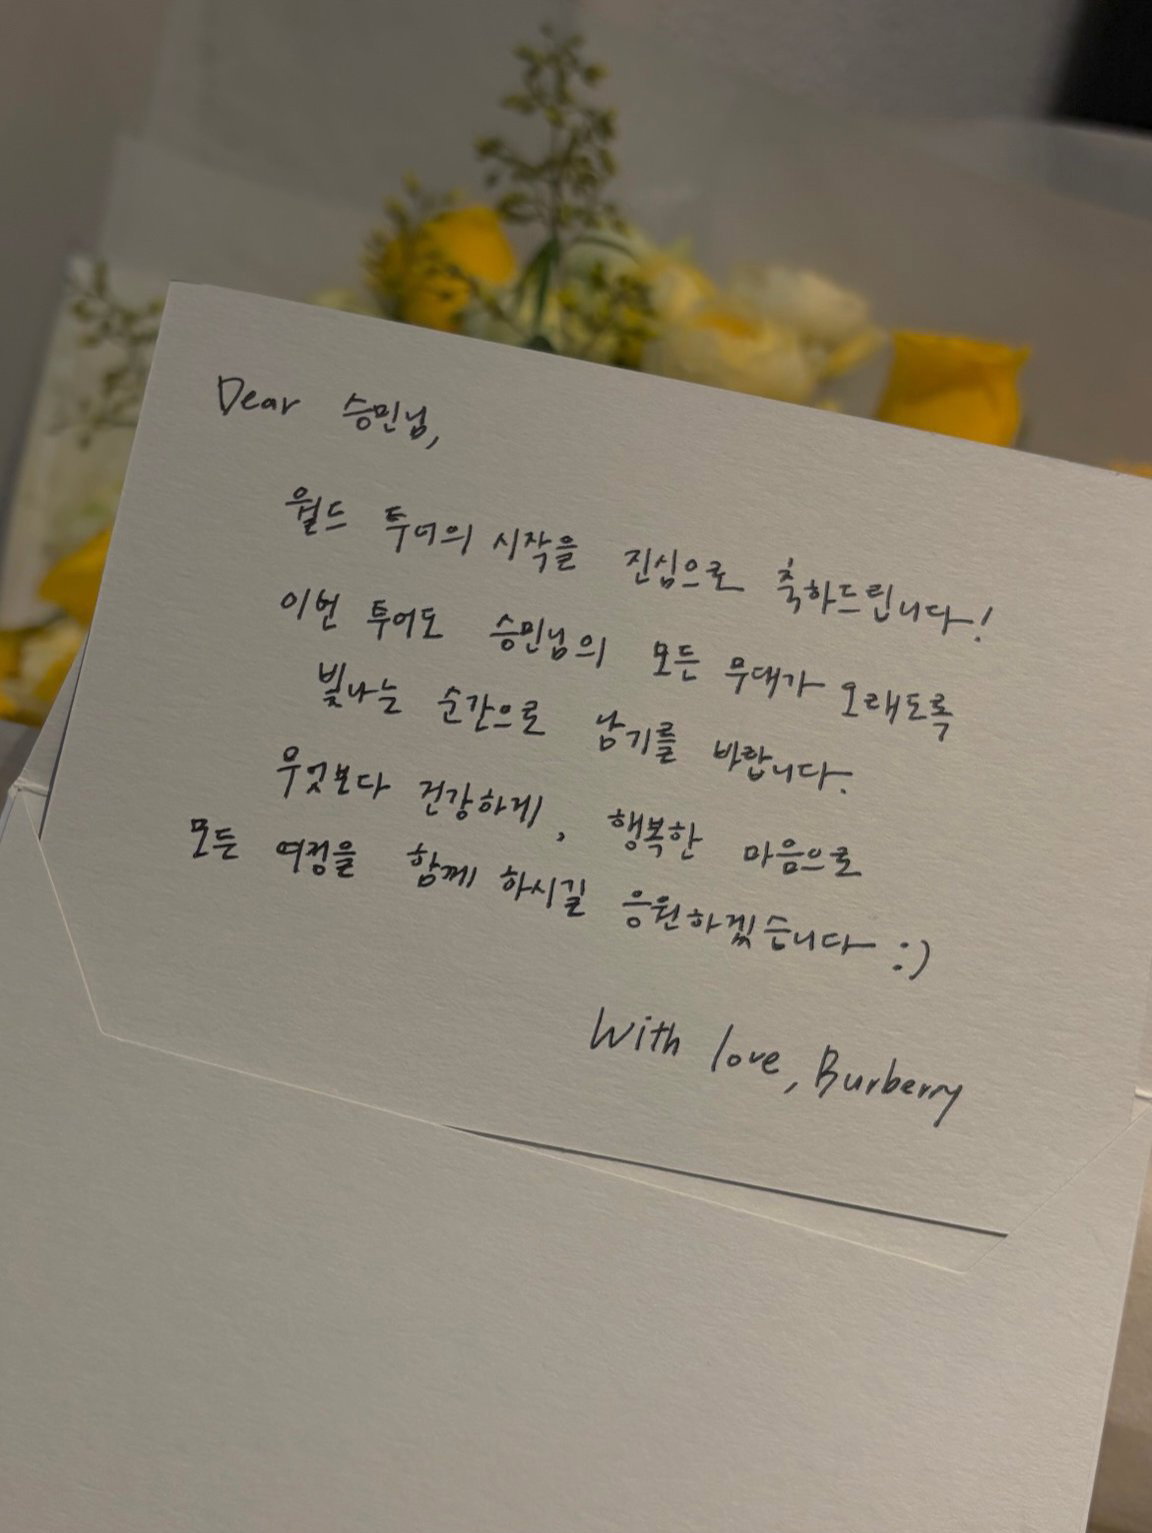 Dear 승민님,
월드 투어의 시작을 진심으로 축하드립니다!
이번 투어도 승민님의 모든 무대가 오래도록
빛나는 순간으로 남기를 바랍니다.
무엇보다 건강하게, 행복한 마음으로
모든 여정을 함께 하시길 응원하겠습니다 :)
With love, Burberry